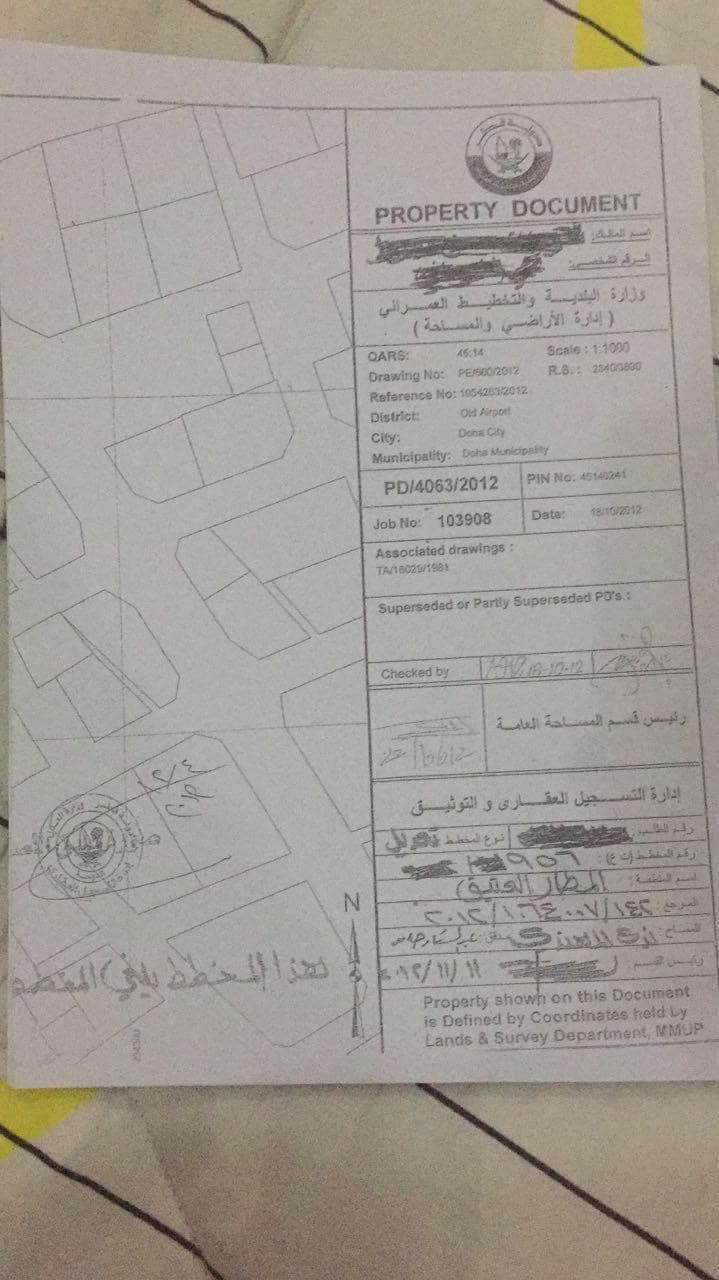 PROPERTY DOCUMENT
اسم المالك:
الرقم الشخصي:
وزارة البلدية والتخطيط العمراني
( إدارة الأراضي والمساحة )
QARS: 45:14 Scale : 1:1000
Drawing No: PE/600/2012 R.S. :
Reference No: 1054263/2012
District: Old Airport
City: Doha City
Municipality: Doha Municipality
PD/4063/2012 PIN No: 45140241
Job No: 103908 Date: 18/10/2012
Associated drawings :
TA/16029/1981
Superseded or Partly Superseded PD's :
Checked by
رئيس قسم المساحة العامة
إدارة التسجيل العقارى و التوثيق
رقم الطلب: نوع المخطط تحويل
رقم المخطط (ت ع): ٩٥٦
اسم المنطقة: المطار العتيق
المرجع: ٢٠١٢/١٠٦٤٠٠٧/١٤٢
المساح:
رئيس القسم ٢٠١٢/١١/١١
N
هذا المخطط يلغي المخطط
Property shown on this Document
is Defined by Coordinates held by
Lands & Survey Department, MMUP